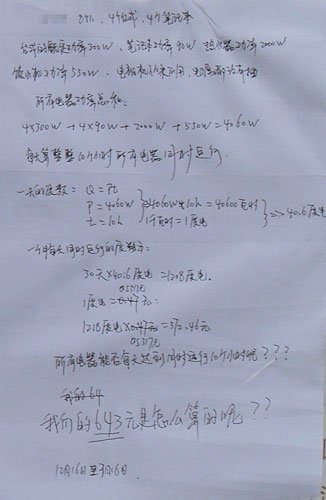 24h、4个台式、4个笔记本
台式的额定功率300W、笔记本功率90W 热水器功率2000W
饮水机功率550W.
所有电器功率总和:
4×300W + 4×90W + 2000W + 550W = 4060W
每天算整整10个小时所有电器同时运行.
一天的度数: Q = Pt
P = 4060W
t = 10h
} ⇒ 4060W×10h = 40600瓦时
1千瓦时 = 1度电
} ⇒ 40.6度电
一个月每天同时运行的度数:
30天×40.6度电 = 1218度电.
0.5317元
1度电 = 0.47元:
1218度电×0.47元 = 572.46元
0.5317元
所有电器能否每天达到同时运行10个小时呢???
我的64
我们的643元是怎么算的呢??
12月16日至3月16日.